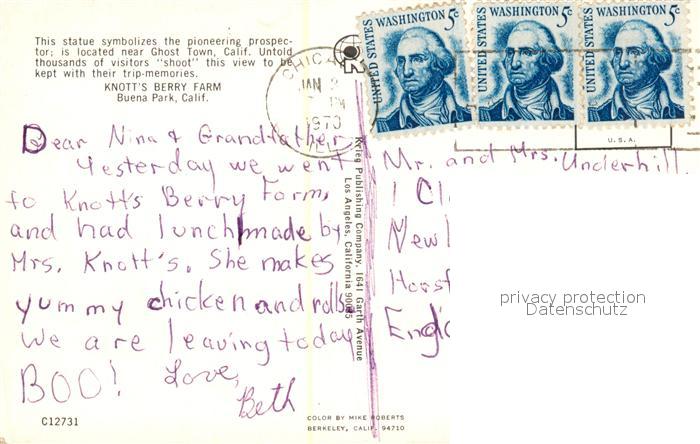 This statue symbolizes the pioneering prospec-
tor; is located near Ghost Town, Calif. Untold
thousands of visitors "shoot" this view to be
kept with their trip-memories.
KNOTT'S BERRY FARM
Buena Park, Calif.
Dear Nina & Grandfather,
Yesterday we went
to Knott's Berry Farm,
and had lunch made by
Mrs. Knott's. She makes
yummy chicken and rolls
We are leaving today
BOO! Love,
Beth
C12731
Krieg Publishing Company, 1641 Garth Avenue
Los Angeles, California 90035
COLOR BY MIKE ROBERTS
BERKELEY, CALIF. 94710
UNITED STATES WASHINGTON 5c
UNITED STATES WASHINGTON 5c
UNITED STATES WASHINGTON 5c
CHICA
JAN
PM
1970
U.S.A.
Mr. and Mrs. Underhill.
1 Cl
New
Horst
Engla
privacy protection
Datenschutz